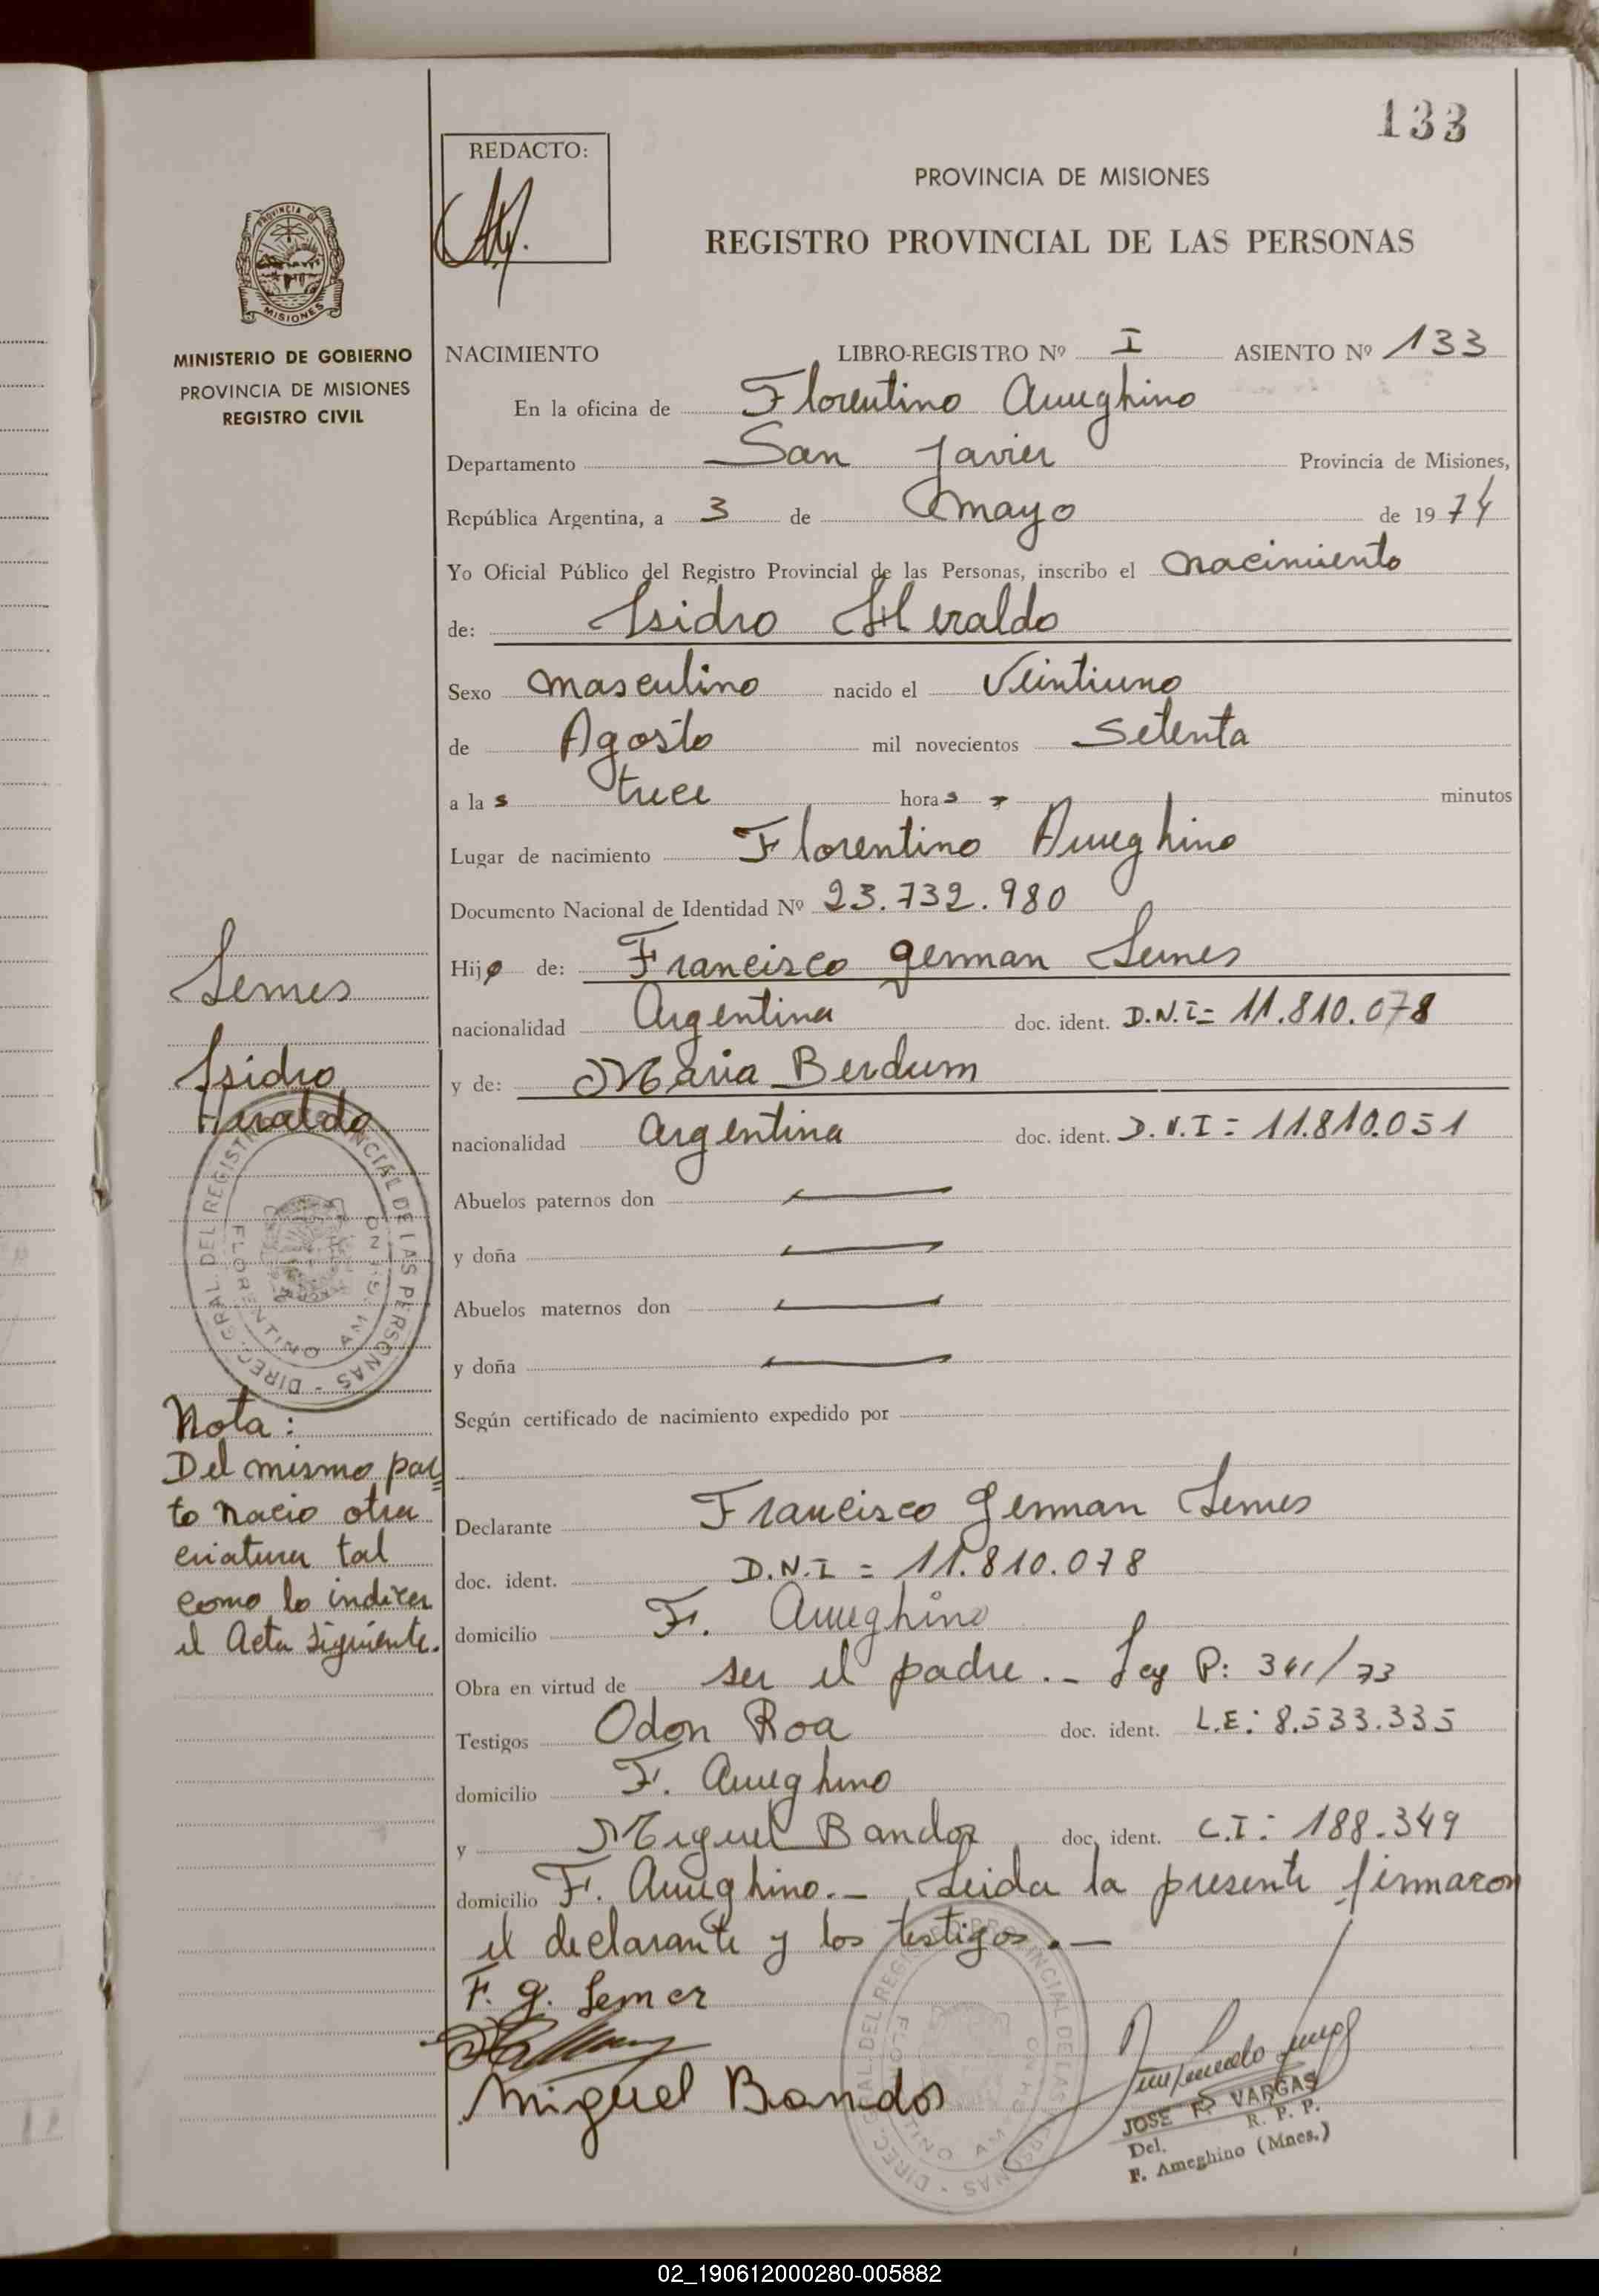 133
REDACTO:
PROVINCIA DE MISIONES
REGISTRO PROVINCIAL DE LAS PERSONAS
PROVINCIA DE
MISIONES
MINISTERIO DE GOBIERNO
PROVINCIA DE MISIONES
REGISTRO CIVIL
NACIMIENTO LIBRO-REGISTRO Nº I ASIENTO Nº 133
En la oficina de Florentino Ameghino
Departamento San Javier Provincia de Misiones,
República Argentina, a 3 de mayo de 1974
Yo Oficial Público del Registro Provincial de las Personas, inscribo el nacimiento
de: Isidro Heraldo
Sexo masculino nacido el Veintiuno
de Agosto mil novecientos Setenta
a las trece horas minutos
Lugar de nacimiento Florentino Ameghino
Documento Nacional de Identidad Nº 23.732.980
Hijo de: Francisco German Lemes
nacionalidad Argentina doc. ident. D.N.I= 11.810.078
y de: Maria Berdum
nacionalidad Argentina doc. ident. D.N.I= 11.810.051
Abuelos paternos don
y doña
Abuelos maternos don
y doña
Según certificado de nacimiento expedido por
Declarante Francisco German Lemes
doc. ident. D.N.I = 11.810.078
domicilio F. Ameghino
Obra en virtud de ser el padre.- Ley P: 341/73
Testigos Odon Roa doc. ident. L.E: 8.533.335
domicilio F. Ameghino
y Miguel Bandoz doc. ident. C.I: 188.349
domicilio F. Ameghino.- Leida la presente firmaron
el declarante y los testigos.-
F. g. Lemer
Miguel Bandos
JOSE F. VARGAS
Del. R. P. P.
F. Ameghino (Mnes.)
Lemes
Isidro
Heraldo
DIREC. GRAL. DEL REGISTRO PROVINCIAL DE LAS PERSONAS -
FLORENTINO AMEGHINO
Nota:
Del mismo par=
to nacio otra
criatura tal
como lo indica
el Acta siguiente.
DIREC. GRAL. DEL REGISTRO PROVINCIAL DE LAS PERSONAS -
FLORENTINO AMEGHINO
02_190612000280-005882